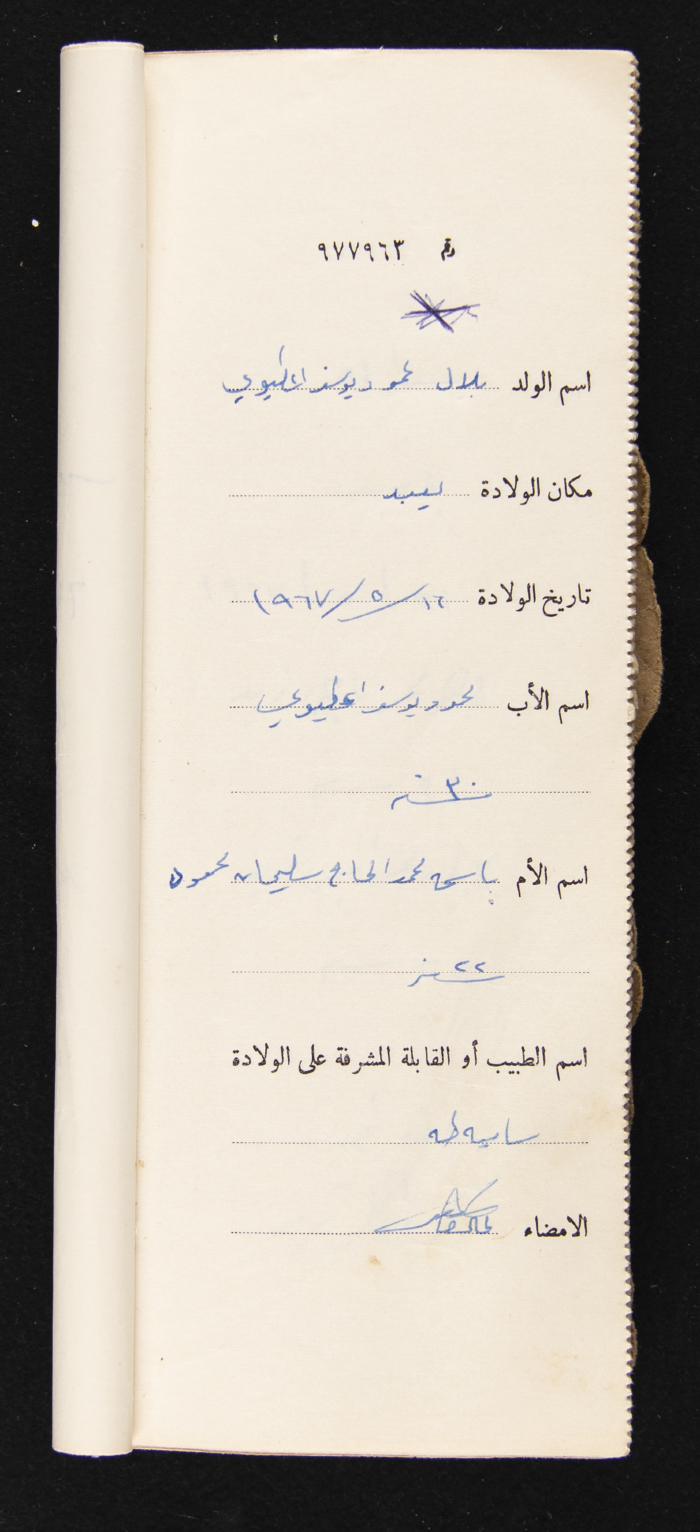 رقم ٩٧٧٩٦٣
اسم الولد بلال محمود يوسف اعطيوي
مكان الولادة يعبد
تاريخ الولادة ١٦/٥/١٩٦٧
اسم الأب محمود يوسف اعطيوي
٣٠ سنة
اسم الأم باسمه محمد الحاج سليمان حمدون
٢٢ سنة
اسم الطبيب أو القابلة المشرفة على الولادة
ساميه طه
الامضاء